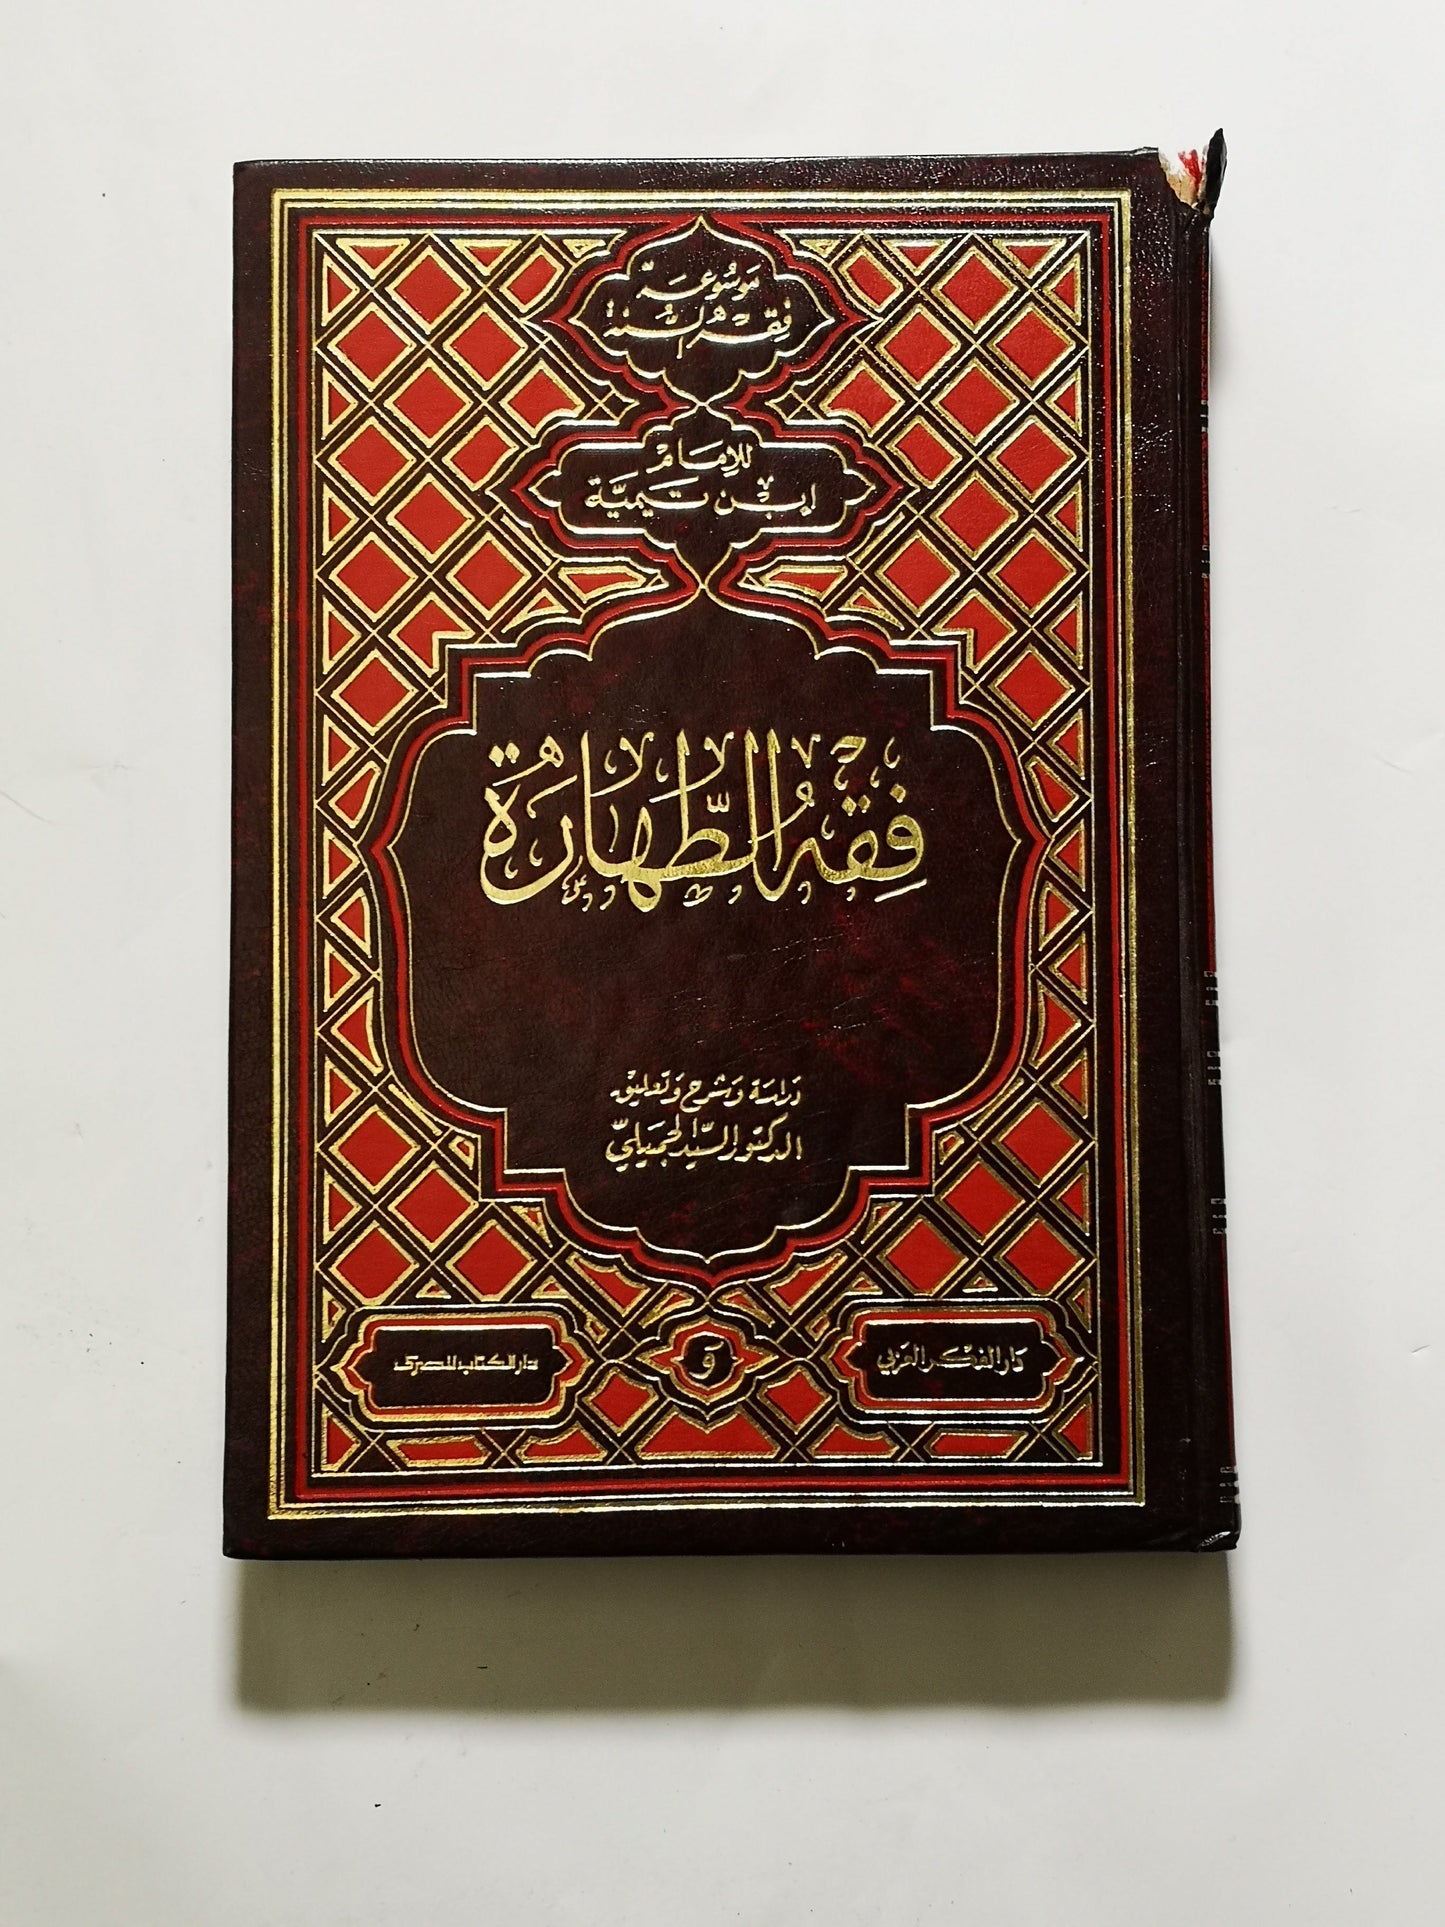 مَوسُوعَة
فِقه السُنة
للإِمَام
إبن تَيميَّة
فِقهُ الطَّهارَة
دَراسَة وَشرح وَتعليق
الدكتور السَّيد الجَميليّ
دَار الفِكر العَرَبي
و
دار الكتاب المصرى